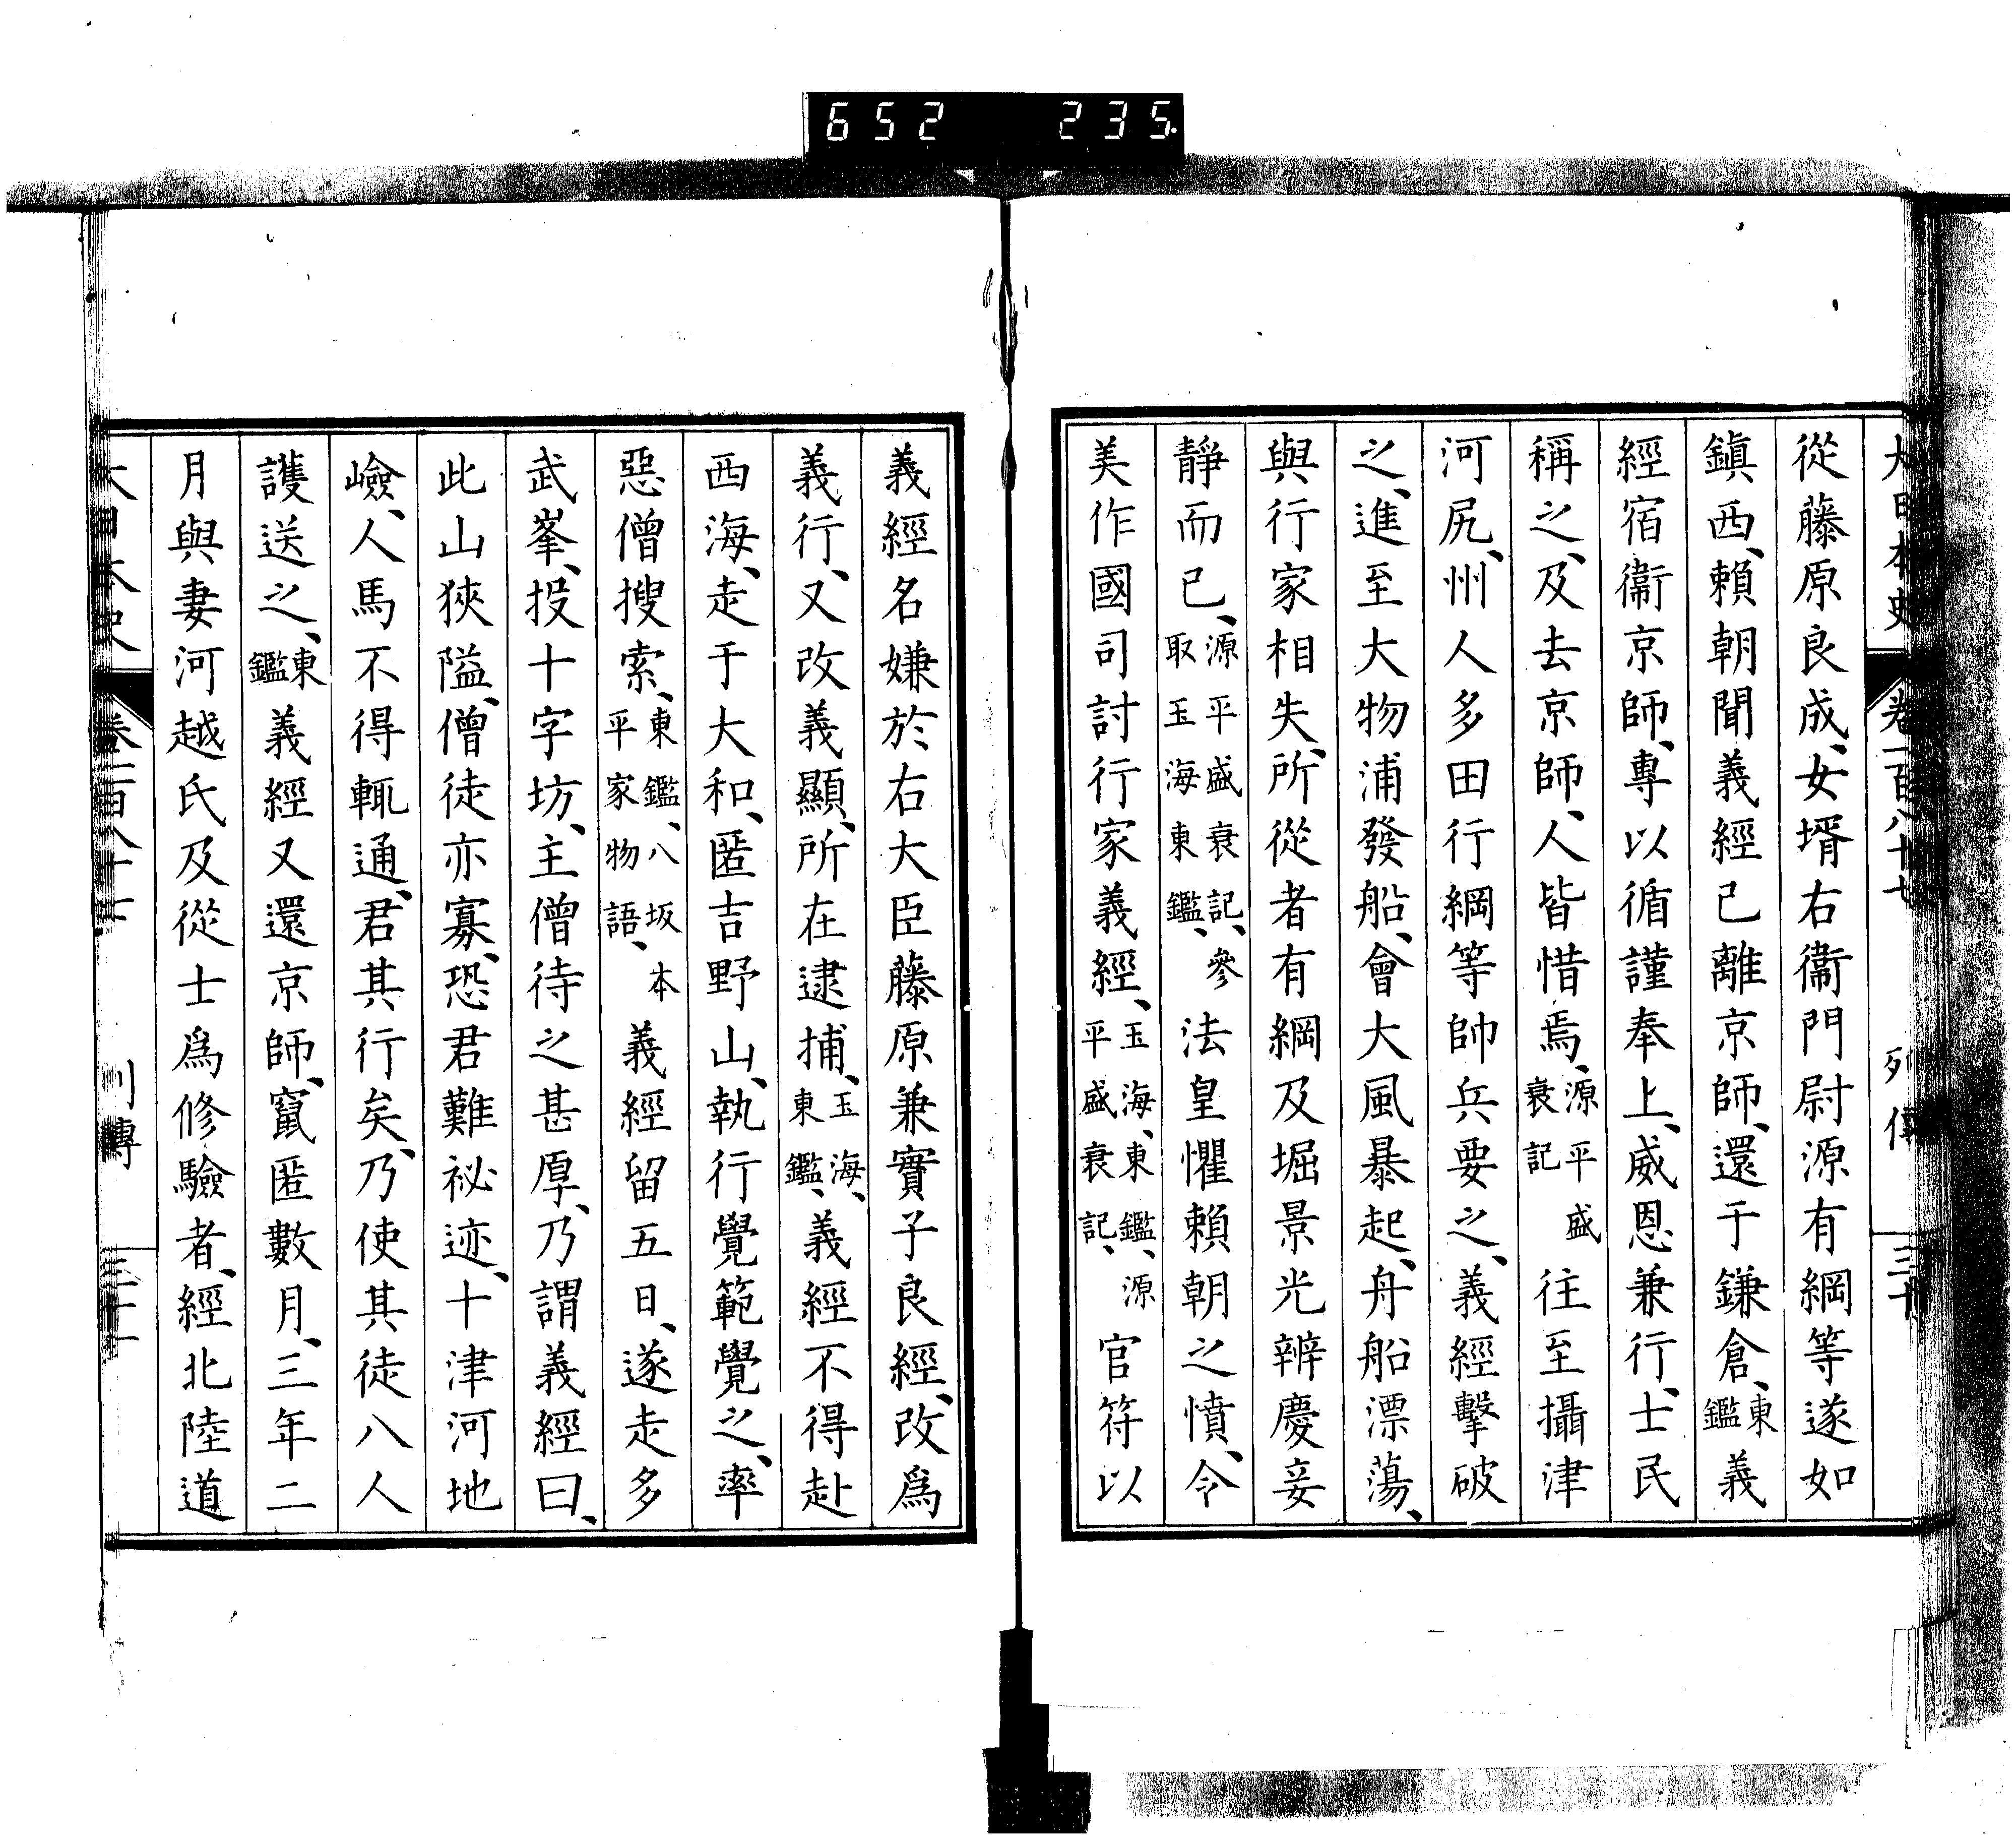 652 235
大日本史 卷一百八十七 列傳 三十
從藤原良成、女壻右衞門尉源有綱等遂如
鎭西、賴朝聞義經已離京師、還于鎌倉、東鑑義
經宿衞京師、專以循謹奉上、威恩兼行、士民
稱之、及去京師、人皆惜焉、源平盛衰記往至攝津
河尻、州人多田行綱等帥兵要之、義經擊破
之、進至大物浦發船、會大風暴起、舟船漂蕩、
與行家相失、所從者有綱及堀景光辨慶妾
靜而已、源平盛衰記、參取玉海東鑑、法皇懼賴朝之憤、令
美作國司討行家義經、玉海、東鑑、源平盛衰記、官符以
義經名嫌於右大臣藤原兼實子良經、改爲
義行、又改義顯、所在逮捕、玉海、東鑑、義經不得赴
西海、走于大和、匿吉野山、執行覺範覺之、率
惡僧搜索、東鑑、八坂本平家物語、義經留五日、遂走多
武峯、投十字坊、主僧待之甚厚、乃謂義經曰、
此山狹隘、僧徒亦寡、恐君難祕迹、十津河地
嶮、人馬不得輒通、君其行矣、乃使其徒八人
護送之、東鑑義經又還京師、竄匿數月、三年二
月與妻河越氏及從士爲修驗者、經北陸道
大日本史 列傳